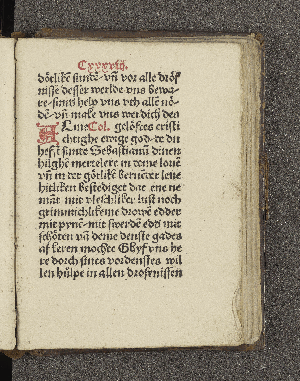 Cxxxvij.
dötlikē sunde vñ vor alle dröf
nisse desser werlde vns bewa
re sunds help vns vth allē nö
dē vñ make vns werdich des
Col. gelöftes cristi
Almechtighe ewige god de du
hest sunte Sebastianū dinen
hilghē mertelere in deme louē
vñ in der götlikē
hitliken bestediget dat ene ne
man mit vleschliker lust noch
grimmichlikeme drowē edder
mit pynē mit swerdē edd mit
schötē vñ deme denste gades
af kerē mochte Ghyf vns he
re dorch sines vordenstes wil
len hülpe in allen drofenissen